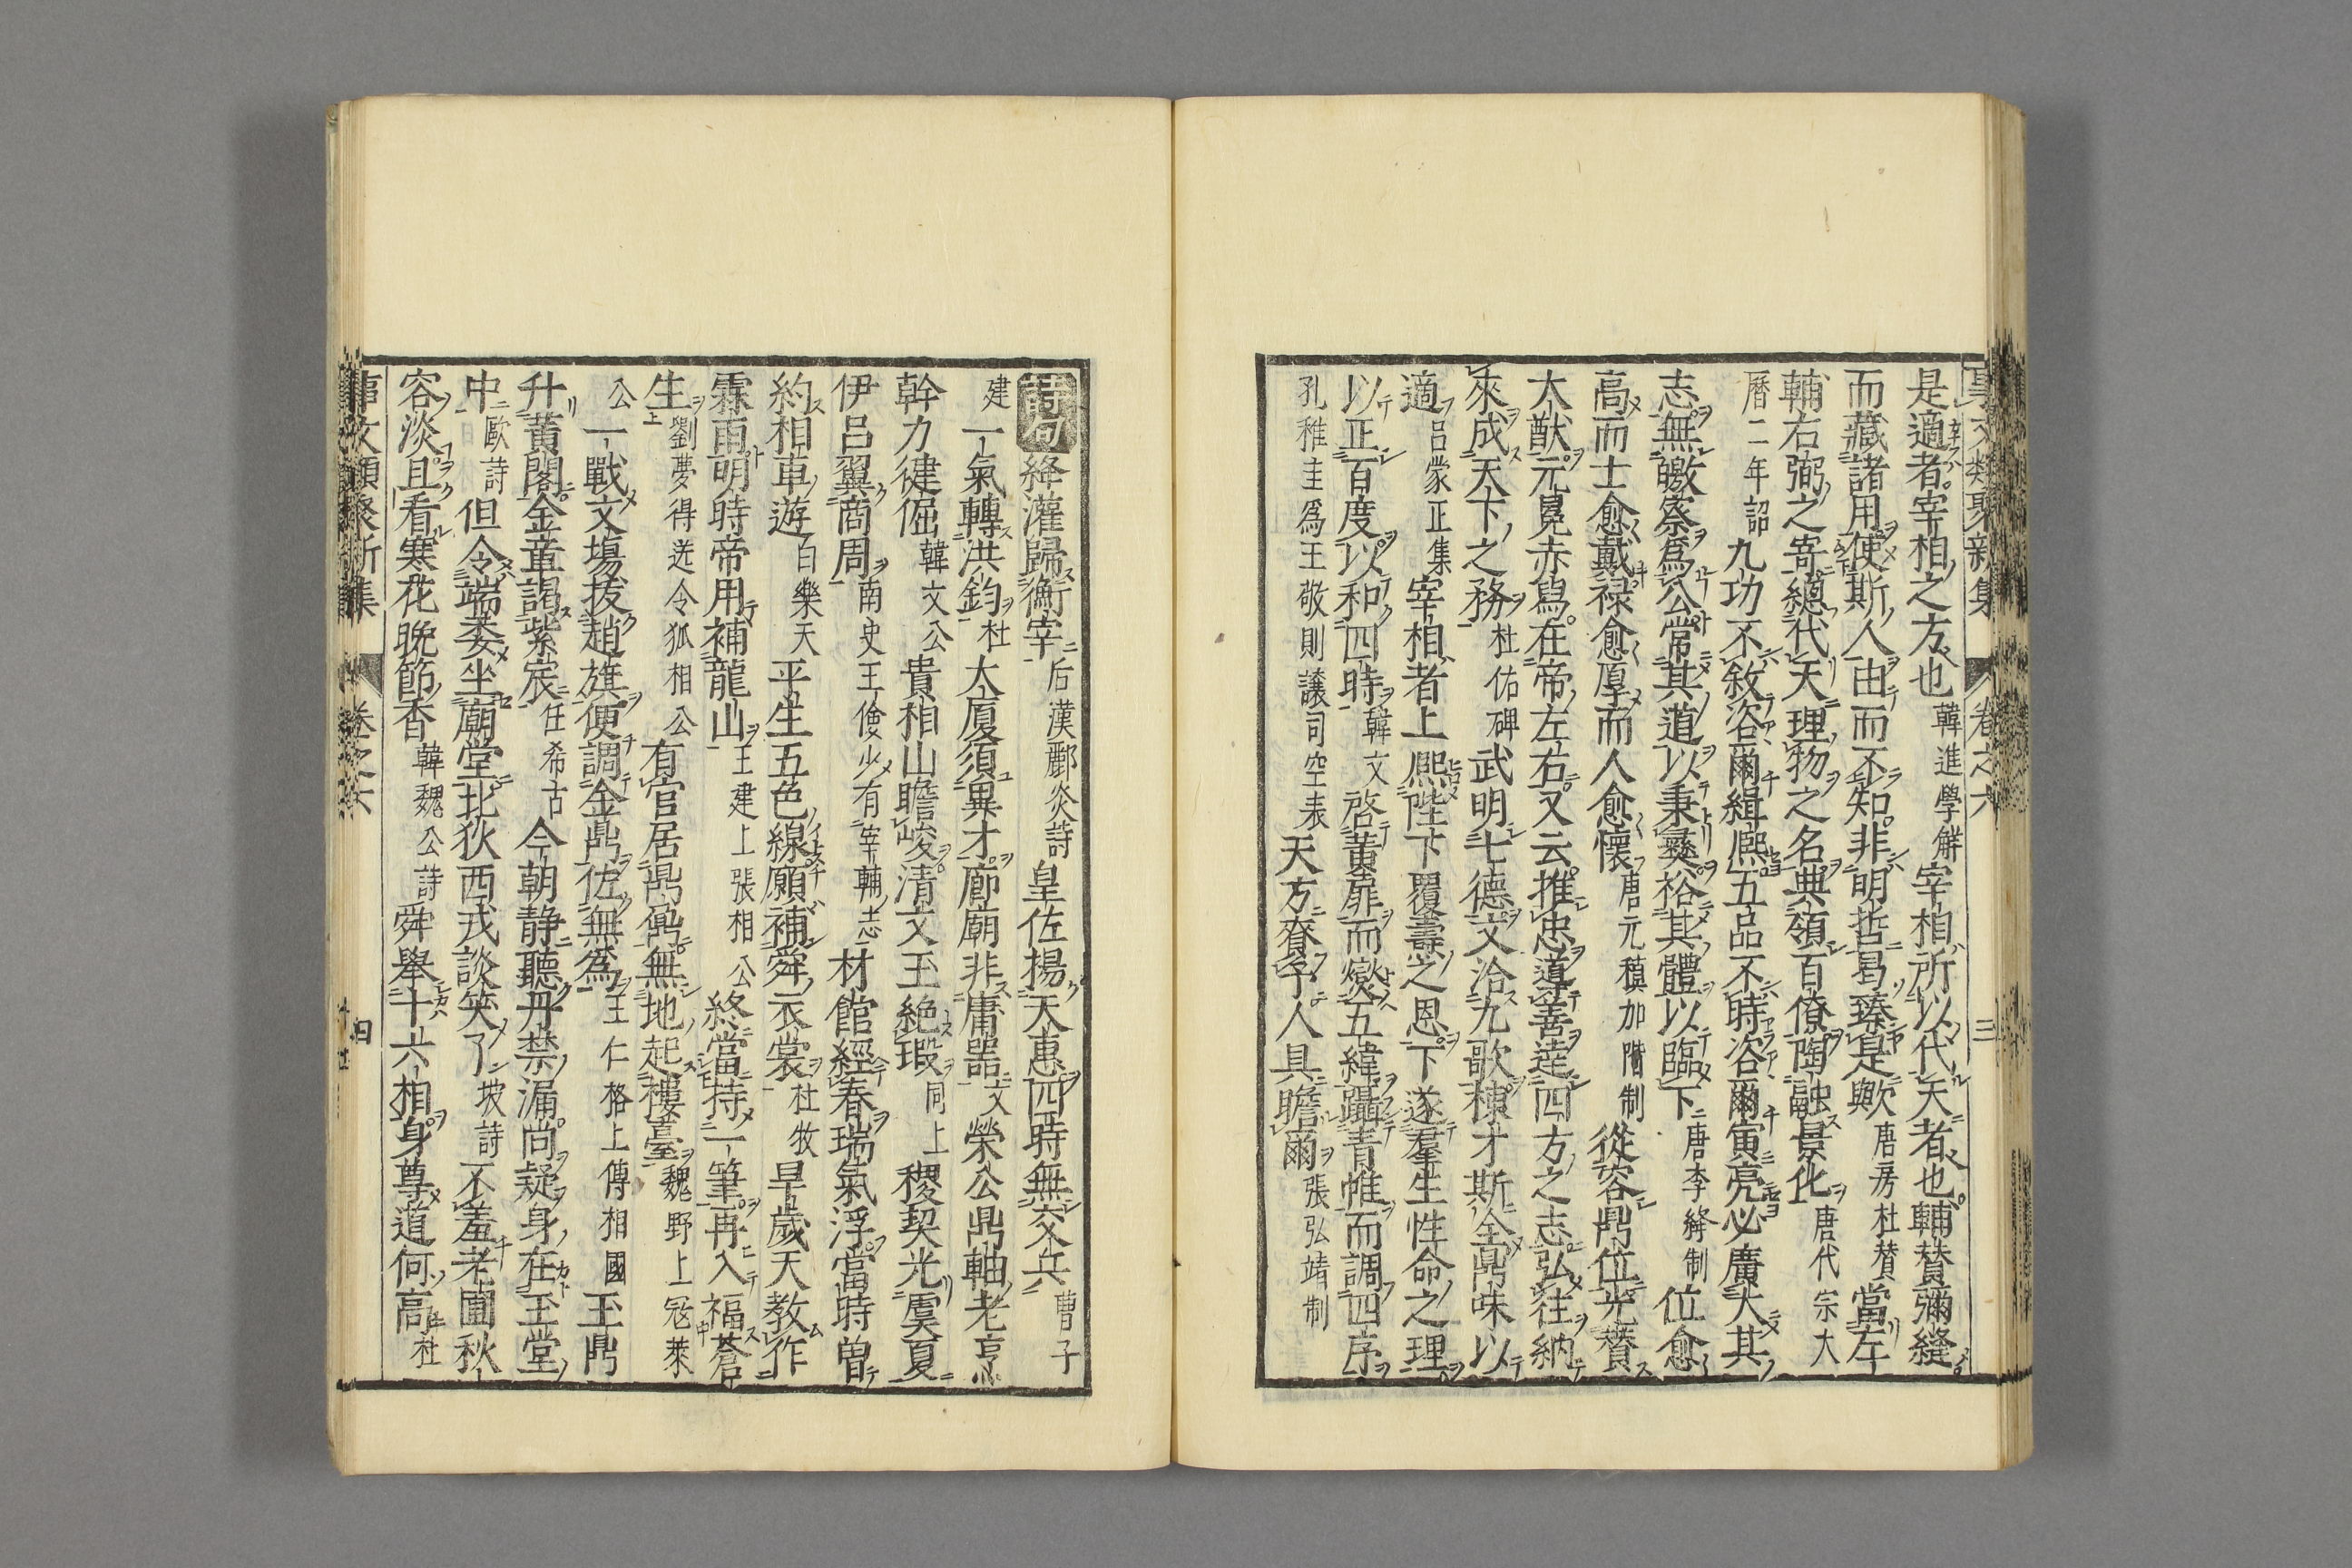 事文類聚新集 卷之六 三
是適者宰相之方也韓進學解宰相所以代天者也輔賛彌縫
而藏諸用使斯人由而不知非明哲曷臻是歟唐房杜賛當左
輔右弼之寄總代天理物之名典領百僚陶融景化唐代宗大
曆二年詔九功不敘咨爾緝熙五品不時咨爾寅亮必廣大其
志無皦察爲公常其道以秉彝裕其體以臨下唐李絳制位愈
高而士愈戴禄愈厚而人愈懷唐元稹加階制從容鼎位光賛
大猷元冕赤舄在帝左右又云推忠導善達四方之志弘往納
來成天下之務杜佑碑武明七德文洽九歌棟才斯全鼎味以
適呂蒙正集宰相者上熙陛下覆燾之恩下遂羣生性命之理
以正百度以和四時韓文啓黃扉而爕五緯躡青帷而調四序
孔稚圭爲王敬則讓司空表天方賚予人具瞻爾張弘靖制
詩句 絳灌歸衡宰后漢酈炎詩皇佐揚天惠四時無交兵曹子
建一氣轉洪鈞杜大厦須異才廊廟非庸器文榮公鼎軸老亨
幹力徤倔韓文公貴相山瞻峻清文玉絶瑕同上稷契光虞夏
伊呂翼商周南史王儉少有宰輔志材館經春瑞氣浮當時曽
約相車遊白樂天平生五色線願補舜衣裳杜牧早歲天教作
霖雨明時帝用補龍山王建上張相公終當持一筆再入福蒼
生劉夢得送令狐相公有官居鼎鼐無地起樓臺魏野上冦萊
公一戰文塲拔趙旗便調金鼎佐無爲王仁裕上傅相國玉鼎
升黃閣金章謁紫宸任希古今朝静聽丹禁漏尚疑身在玉堂
中歐詩但令端委坐廟堂北狄西戎談笑了坡詩不羞老圃秋
容淡且看寒花晚節香韓魏公詩舜舉十六相身尊道何高杜
事文類聚新集 卷之六 四